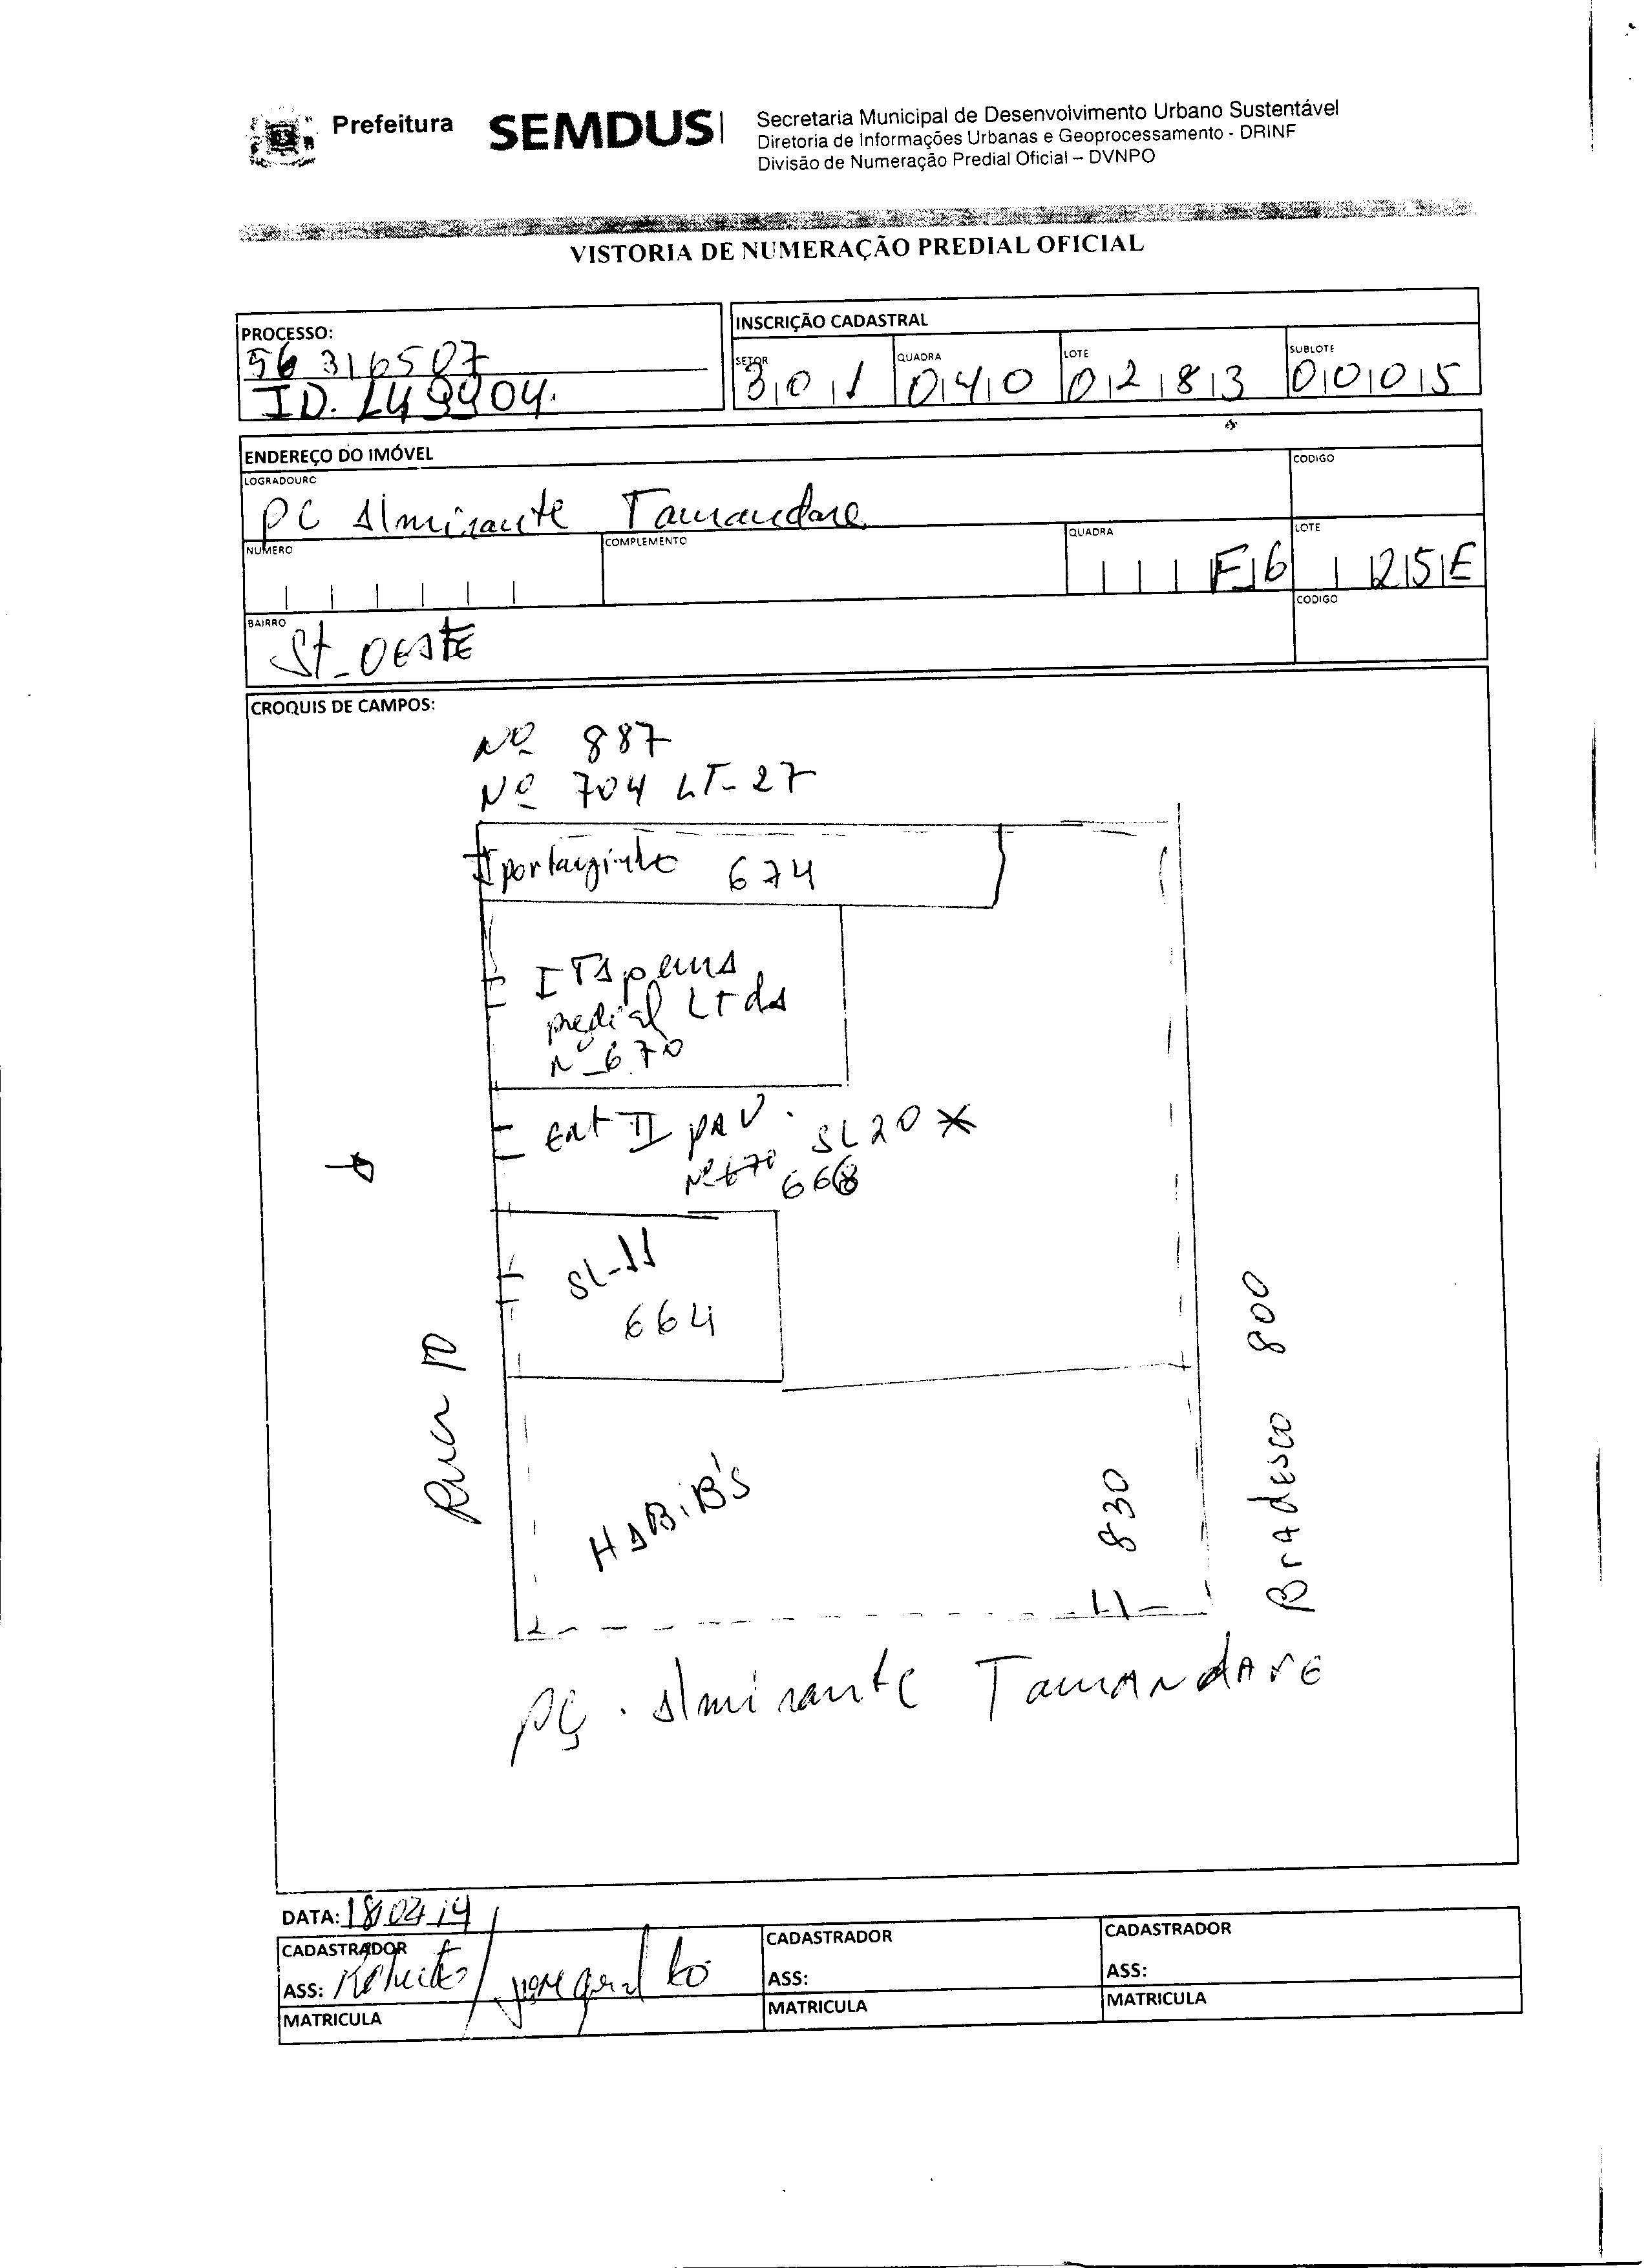 Prefeitura SEMDUS
Secretaria Municipal de Desenvolvimento Urbano Sustentável
Diretoria de Informações Urbanas e Geoprocessamento - DRINF
Divisão de Numeração Predial Oficial – DVNPO
VISTORIA DE NUMERAÇÃO PREDIAL OFICIAL
PROCESSO:
56 316507
ID. 149904.
INSCRIÇÃO CADASTRAL
SETOR QUADRA LOTE SUBLOTE
301 040 0283 0005
ENDEREÇO DO IMÓVEL
LOGRADOURO CODIGO
PC Almirante Tamandare
NUMERO COMPLEMENTO QUADRA LOTE
F6 25E
BAIRRO CODIGO
St_OESTE
CROQUIS DE CAMPOS:
Nº 887
Nº 704 LT-27
674
ITApema
predial Ltda
N_670
Ent II pav. SL20
Nº 670
668
SL-11
664
Rua 10
HABiB'S
830
Bradesco 800
PÇ. Almirante TamANdAre
DATA: 18/02/14
CADASTRADOR CADASTRADOR CADASTRADOR
ASS: ASS: ASS:
MATRICULA MATRICULA MATRICULA